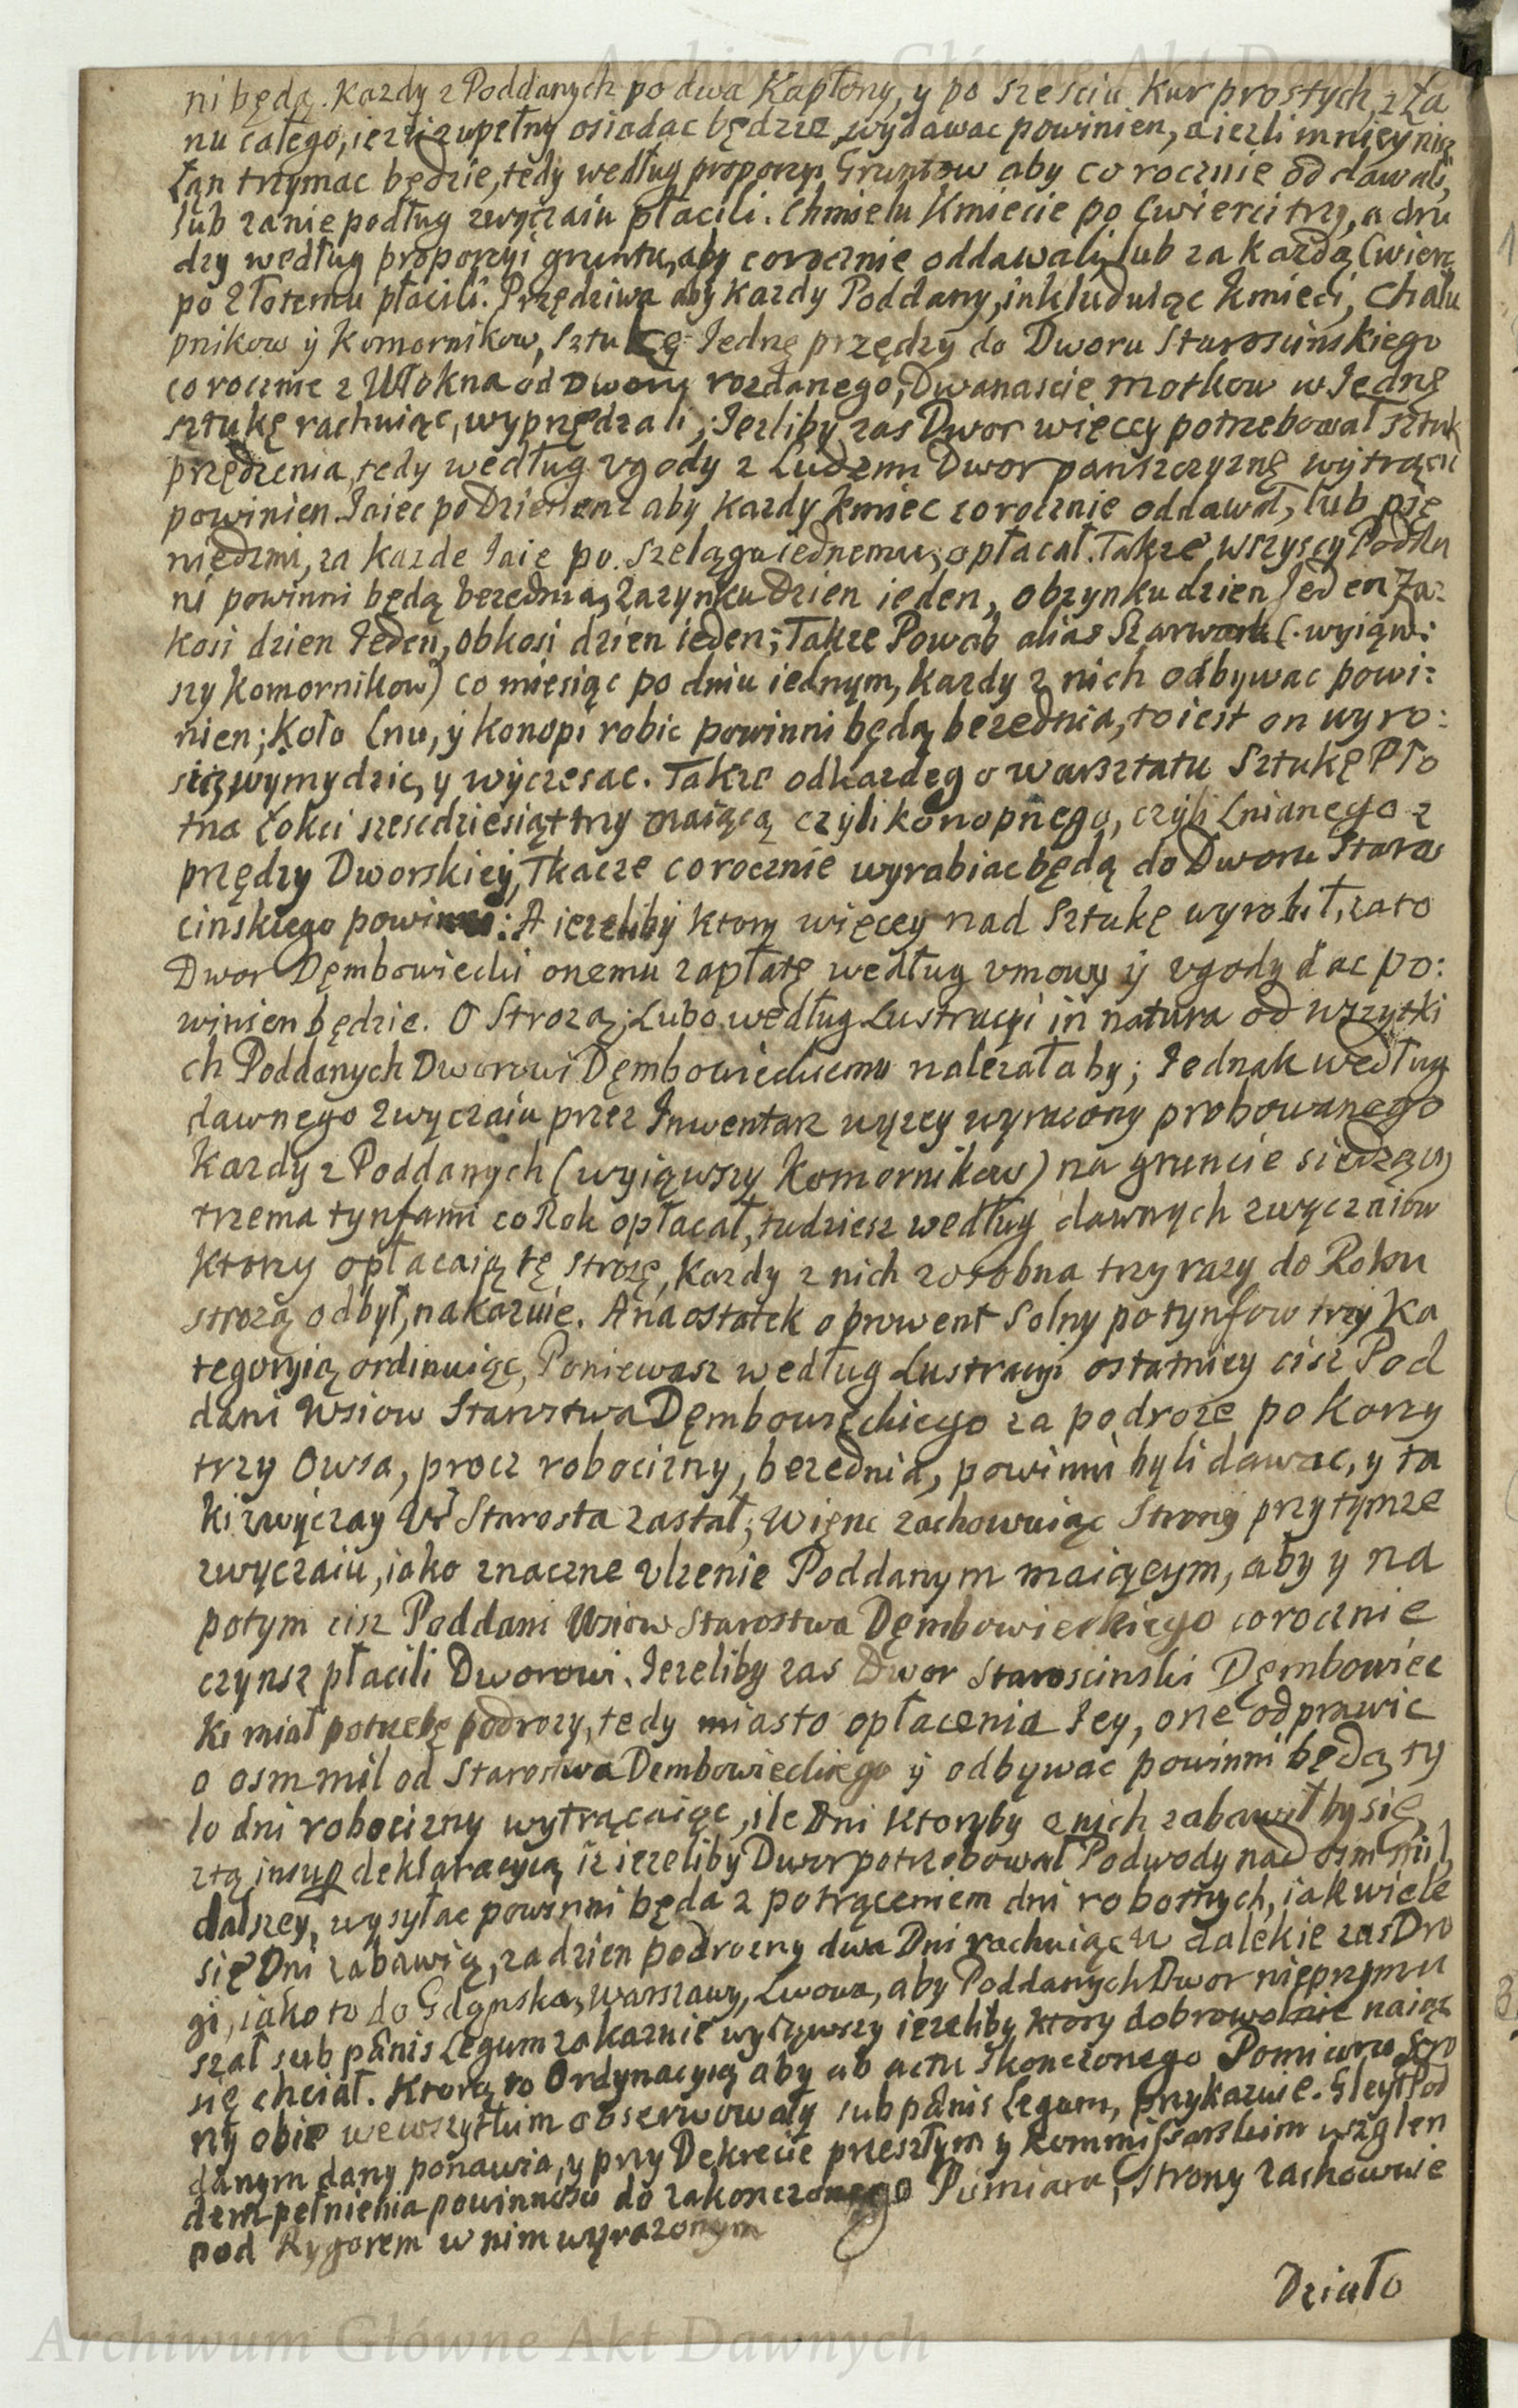 Archiwum Główne Akt Dawnych
ni będą. Kazdy z Poddanych po dwa Kapłony, y po szesciu Kur prostych, z Ła
nu całego, iezli zupełny osiadac będzie, wydawac powinien, a iezli mnieÿ nisz
Łan trzymac będzie, tedy według proporcyi Gruntow aby co rocznie oddawali,
lub zanie podług zwyczaiu płacili. Chmielu Kmiecie po Cwierci trzy, a dru
dzy według proporcyi gruntu, aby corocznie oddawali, lub za Kazdą Cwierc
po Złotemu płacili. Przędziwa aby Kazdy Poddany, inkluduiąc Kmieci, Chału
pnikow ÿ Komornikow, Sztukę Iednę przędzy do Dworu Staroscinskiego
corocznie z Włokna od Dworu rozdanego, Dwanascie motkow w Iednę
sztukę rachuiąc, wyprzędzali; Iezliby zas Dwor więcey potrzebował sztuk
przędzenia, tedy według vgody z Ludzmi Dwor panszczyznę wytrącic
powinien. Iaiec po Dziesienc aby Kazdy Kmiec corocznie oddawał, lub pię
niedzmi, za kazde Iaie po szelągu iednemu, opłacał. Takze wszyscy Podda
ni powinni będą bezednia, Zazynku Dzien ieden, obzynku dzien Ieden Za:
kosi dzien Ieden, obkosi dzien ieden; Takze Powab alias Szarwark (.wyiąw:
szy Komornikow) co miesiąc po dniu iednym, kazdy z nich odbywac powi:
nien; Koło lnu, ÿ konopi robic powinni będą bezednia, to iest on wyro:
sić, wymydzic, y wyczesac. Takze od kazdego warsztatu Sztukę Pło
tna Łokci szescdziesiąt trzy maiącą czyli konopnego, czyli Lnianego z
przędzy Dworskieÿ, Tkacze corocznie wyrabiac będą do Dworu Staros
cinskiego powinni: A iezeliby ktory więcey nad Sztukę wyrobił, za to
Dwor Dęmbowiecki onemu zapłatę według vmowy ÿ vgody dac po:
winien będzie. O Strozą; Lubo według Lustracyi in natura od wszytki
ch Poddanych Dworowi Dęmbowieckiemu nalezałaby; Iednak według
dawnego zwyczaiu przez Inwentarz wyzey wyrazony probowanego
Kazdy z Poddanych (wyiąwszy Komornikow) na gruncie siedzący
trzema tynfami co Rok opłacał, tudziesz według dawnych zwyczaiow
Ktorzy opłacaią tę strozę, Kazdy z nich zosobna trzy razy do Roku
strozą odbył, nakazuie. A na ostatek o prowent Solny po tynfow trzy Ka
tegoryią ordinuiąc, Poniewasz według Lustracyi ostatniey cisz Pod
dani Wsiow Starostwa Dęmbowieckiego za podroze po Korcy
trzy Owsa, procz robocizny, bezednia, powinni byli dawac, y ta
ki zwyczay Ur Starosta zastał; Więnc zachowuiąc Strony przy tymze
zwyczaiu, iako znaczne vlzenie Poddanym maiącym, aby y na
potym cisz Poddani Wsiow Starostwa Dęmbowieckiego corocznie
czynsz płacili Dworowi. Iezeliby zas Dwor Staroscinski Dęmbowiec
ki miał potrzebę podrozy, tedy miasto opłacenia Iey, one odprawic
o osm mil od Starostwa Dembowieckiego ÿ odbywac powinni będą, ty
lo dni robocizny wytrącaiąc, ile Dni Ktoryby z nich zabawił by się,
z tą insup deklaracyią, iz iezeliby Dwor potrzebował Podwody nad osm mil
dalszey, wysyłac powinni będa z potrąceniem dni robotnych, iak wiele
się Dni zabawią, za dzien podrozny dwa Dni rachuiąc w dalekie zas Dro
gi, iako to do Gdąnska, Warszawy, Lwowa, aby Poddanych Dwor nieprzymu
szał sub pænis Legum zakaznie wyiąwszy iezeliby ktory dobrowolnie naiąc
się chciał. Ktorą to Ordynacyią aby ab actu skonczonego Pomiaru Stro
ny obie we wszytkim obserwowały sub pænis Legum, przykazuie. Gleyt Pod
danym dany ponawia, y przy Dekrecie przeszłym y Kommissarskim wzglen
dem pełnienia powinnosci do zakonczonego Pomiara, Strony zachowuie
pod Rygorem w nim wyrazonym
Działo
Archiwum Główne Akt Dawnych